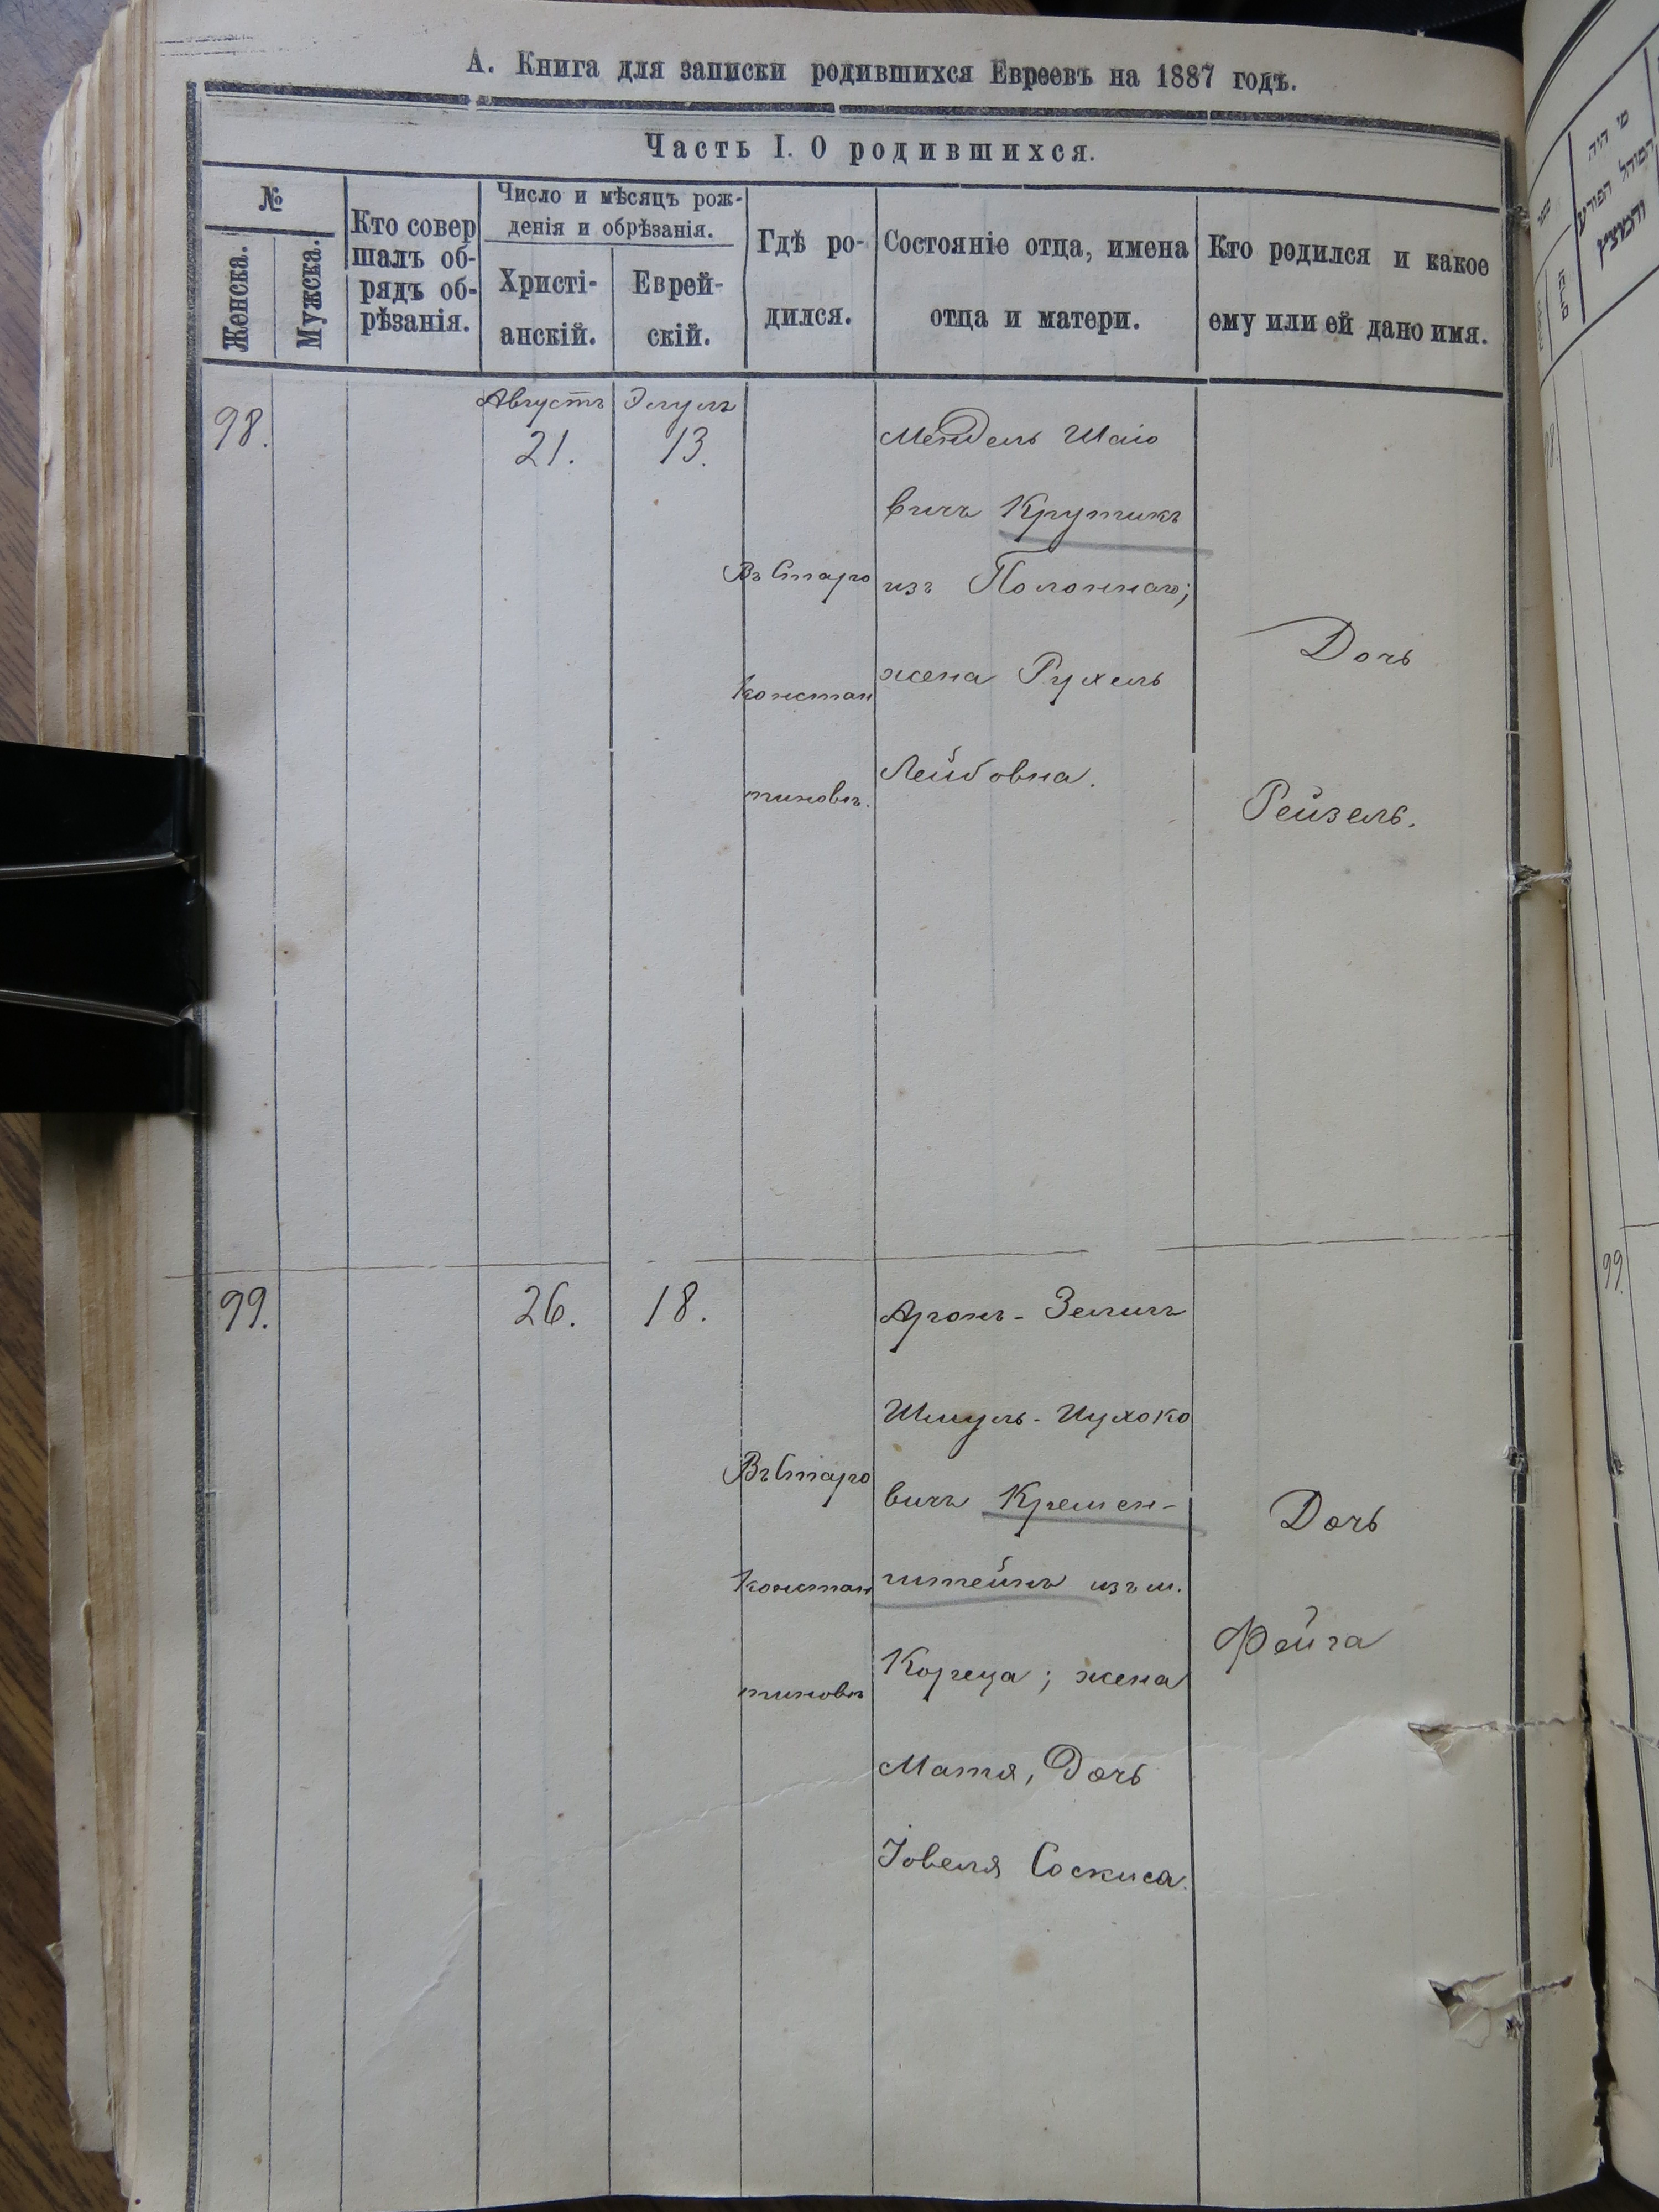 А. Книга для записки родившихся Евреевъ на 1887 годъ.
Часть I. О родившихся.
№
Женска.
Мужска.
Кто совер
шалъ об-
рядъ об-
рѣзанія.
Число и мѣсяцъ рож-
денія и обрѣзанія.
Христі-
анскій.
Еврей-
скій.
Гдѣ ро-
дился.
Состояніе отца, имена
отца и матери.
Кто родился и какое
ему или ей дано имя.
98.
Августъ
21.
Элулъ
13.
Въ Старо
констан
тиновѣ.
Мендель Шаіо
вичъ Крутикъ
изъ Полоннаго;
жена Рухель
Лейбовна.
Дочь
Рейзель.
99.
26.
18.
Въ Старо
констан
тиновѣ
Аронъ-Зелигъ
Шмуль-Ицхоко
вичъ Кремен-
штейнъ изъ м.
Кореца; жена
Матя, Дочь
Іовеля Соскиса.
Дочь
Фейга
מי היה
המוהל הפורע
והמוצץ
99.